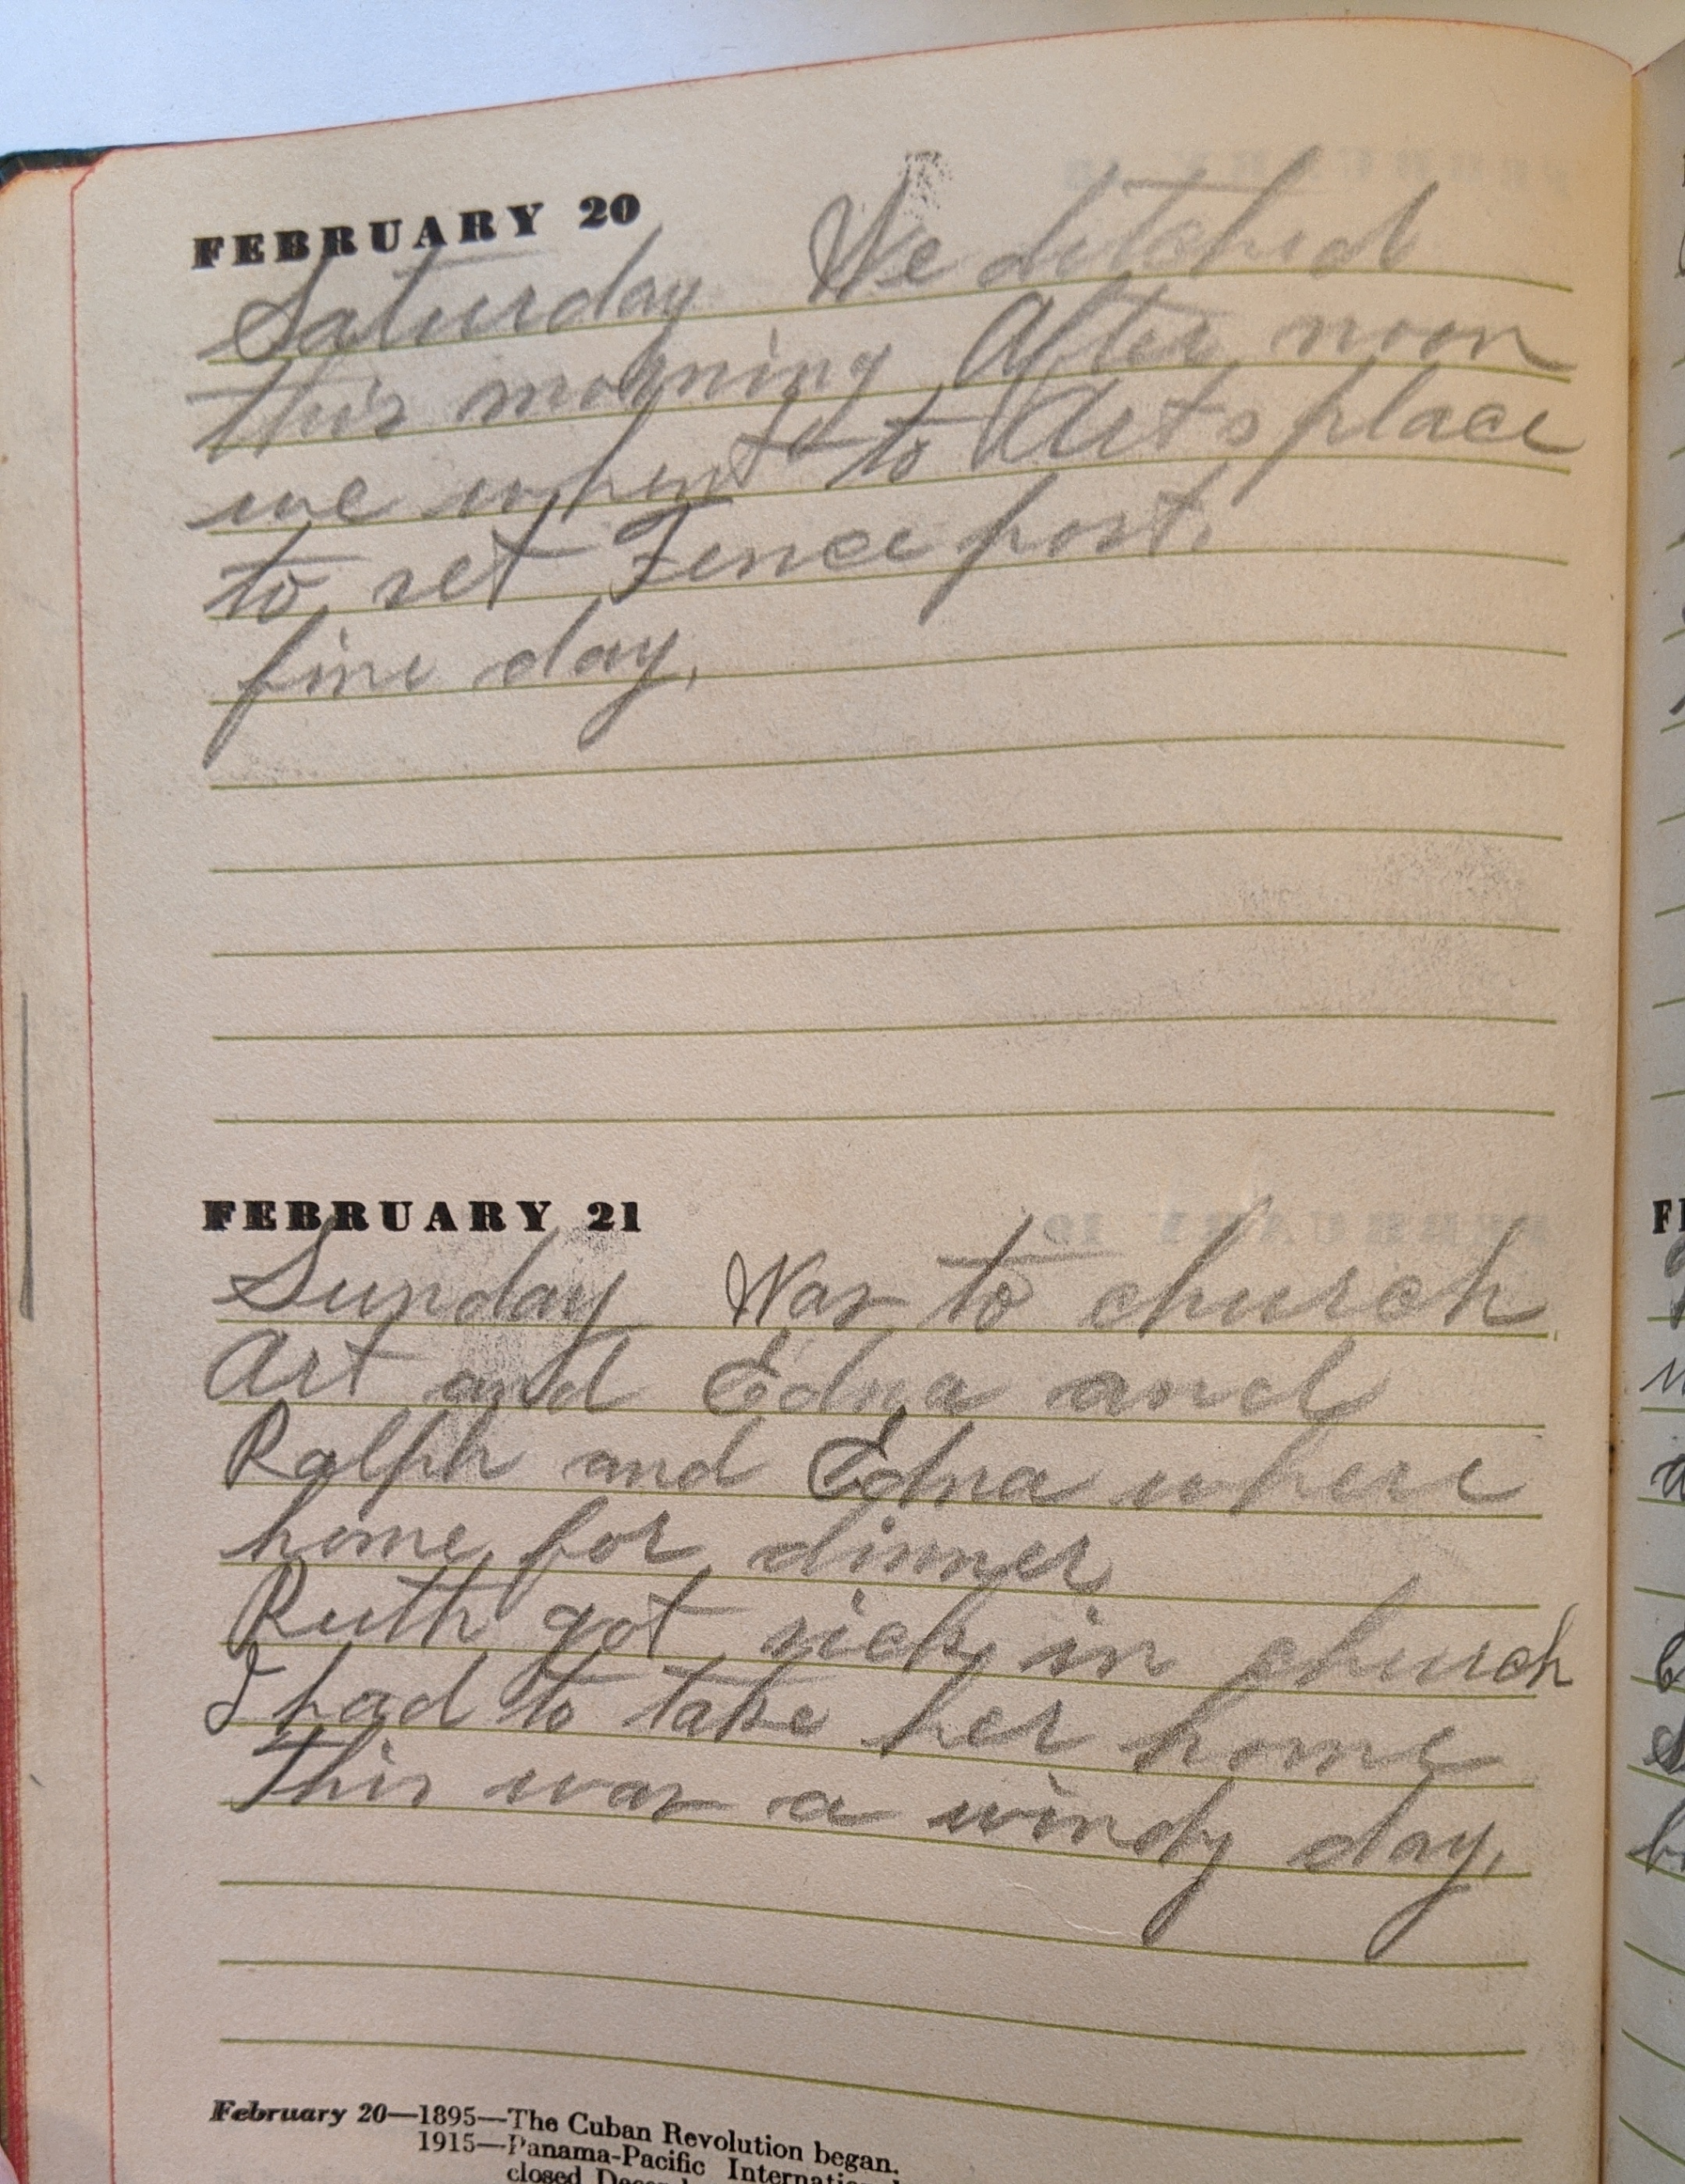 FEBRUARY 20
Saturday We ditched
this morning After noon
we when to to Arts place
to set Fence post.
fine day.
FEBRUARY 21
Sunday Was to church
Art and Edna and
Ralph and Edna where
home for dinner
Ruth got sick in church
I had to take her home
This was a windy day.
February 20—1895—The Cuban Revolution began.
1915—Panama-Pacific
closed